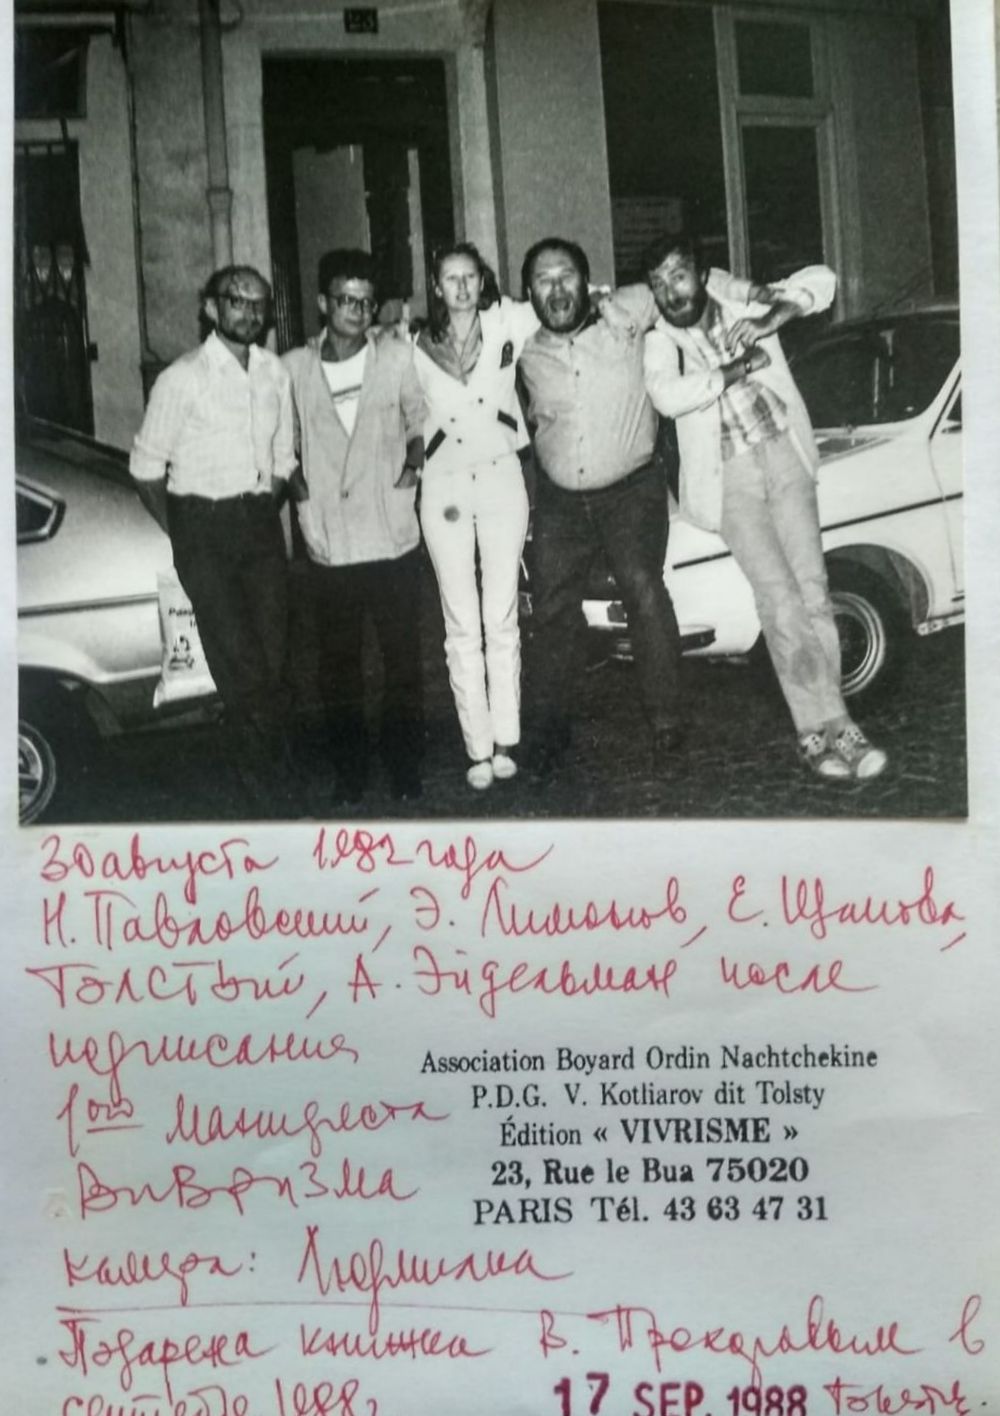 123
30 августа 1982 года
Н. Павловский, Э. Лимонов, Е. Щапова,
Толстый, А. Эйдельман после
подписания
1ого Манифеста
Вивризма
камера: Людмила
Association Boyard Ordin Nachtchekine
P.D.G. V. Kotliarov dit Tolsty
Édition « VIVRISME »
23, Rue le Bua 75020
PARIS Tél. 43 63 47 31
Подарена книжка В. Прекоровым в
сентябре 1988г.
17 SEP. 1988 Толстый